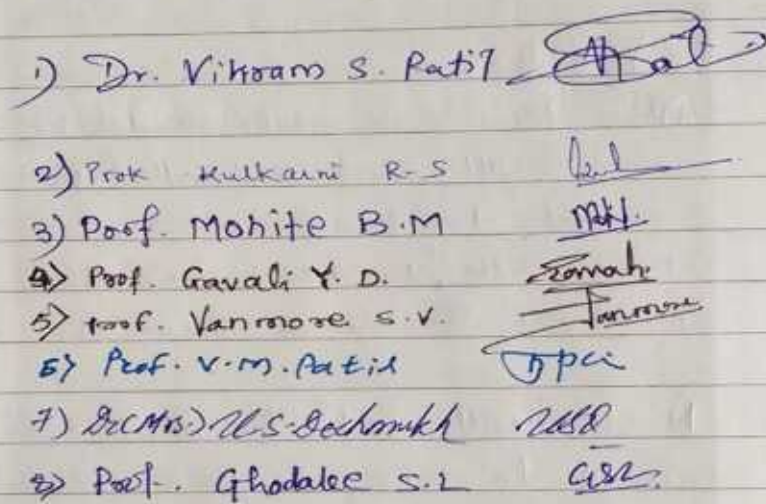 1) Dr. Vikram S. Patil
2) Prof Kulkarni R.S
3) Prof. Mohite B.M
4) Prof. Gavali Y. D.
5) Prof. Vanmore S.V.
6) Prof. V.M. Patil
7) Dr (Mrs.) U.S. Deshmukh USD
8) Prof. Ghodake S.L GSL